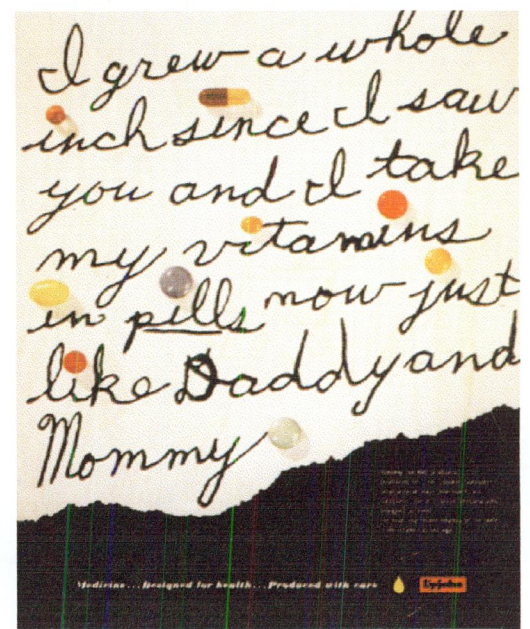 I grew a whole
inch since I saw
you and I take
my vitamins
in pills now just
like Daddy and
Mommy
Medicine...Designed for health...Produced with care
Upjohn